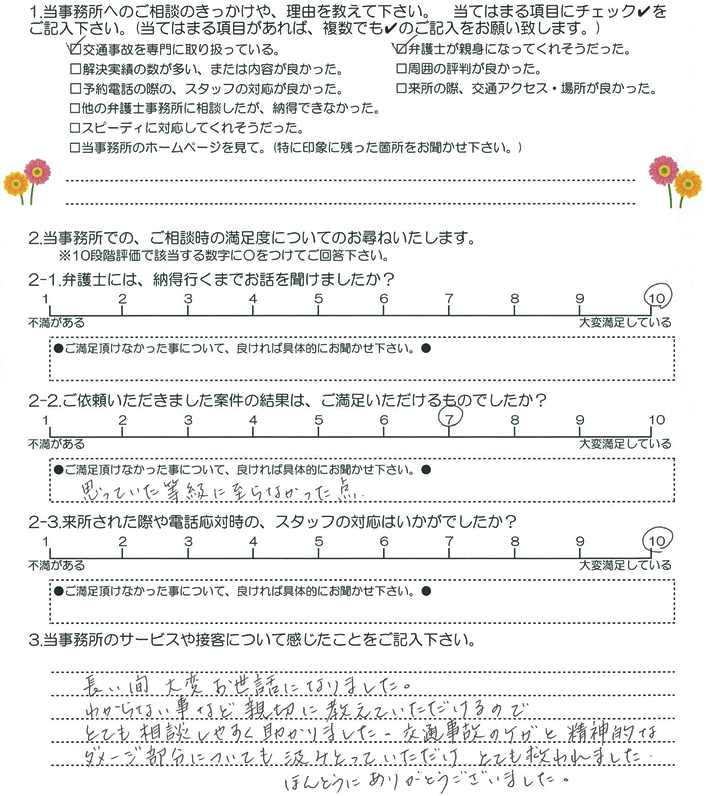 1.当事務所へのご相談のきっかけや、理由を教えて下さい。 当てはまる項目にチェック✔を
ご記入下さい。(当てはまる項目があれば、複数でも✔のご記入をお願い致します。)
☑交通事故を専門に取り扱っている。 ☑弁護士が親身になってくれそうだった。
□解決実績の数が多い、または内容が良かった。 □周囲の評判が良かった。
□予約電話の際の、スタッフの対応が良かった。 □来所の際、交通アクセス・場所が良かった。
□他の弁護士事務所に相談したが、納得できなかった。
□スピーディに対応してくれそうだった。
□当事務所のホームページを見て。(特に印象に残った箇所をお聞かせ下さい。)
2.当事務所での、ご相談時の満足度についてのお尋ねいたします。
※10段階評価で該当する数字に○をつけてご回答下さい。
2-1.弁護士には、納得行くまでお話を聞けましたか？
1 2 3 4 5 6 7 8 9 10
不満がある 大変満足している
●ご満足頂けなかった事について、良ければ具体的にお聞かせ下さい。●
2-2.ご依頼いただきました案件の結果は、ご満足いただけるものでしたか？
1 2 3 4 5 6 7 8 9 10
不満がある 大変満足している
●ご満足頂けなかった事について、良ければ具体的にお聞かせ下さい。●
思っていた等級に至らなかった点.
2-3.来所された際や電話応対時の、スタッフの対応はいかがでしたか？
1 2 3 4 5 6 7 8 9 10
不満がある 大変満足している
●ご満足頂けなかった事について、良ければ具体的にお聞かせ下さい。●
3.当事務所のサービスや接客について感じたことをご記入下さい。
長い間 大変お世話になりました。
わからない事など 親切に教えていただけるので
とても相談しやすく助かりました-交通事故のケガと精神的な
ダメージ部分についても汲みとっていただけ とても救われました.
ほんとうにありがとうございました。